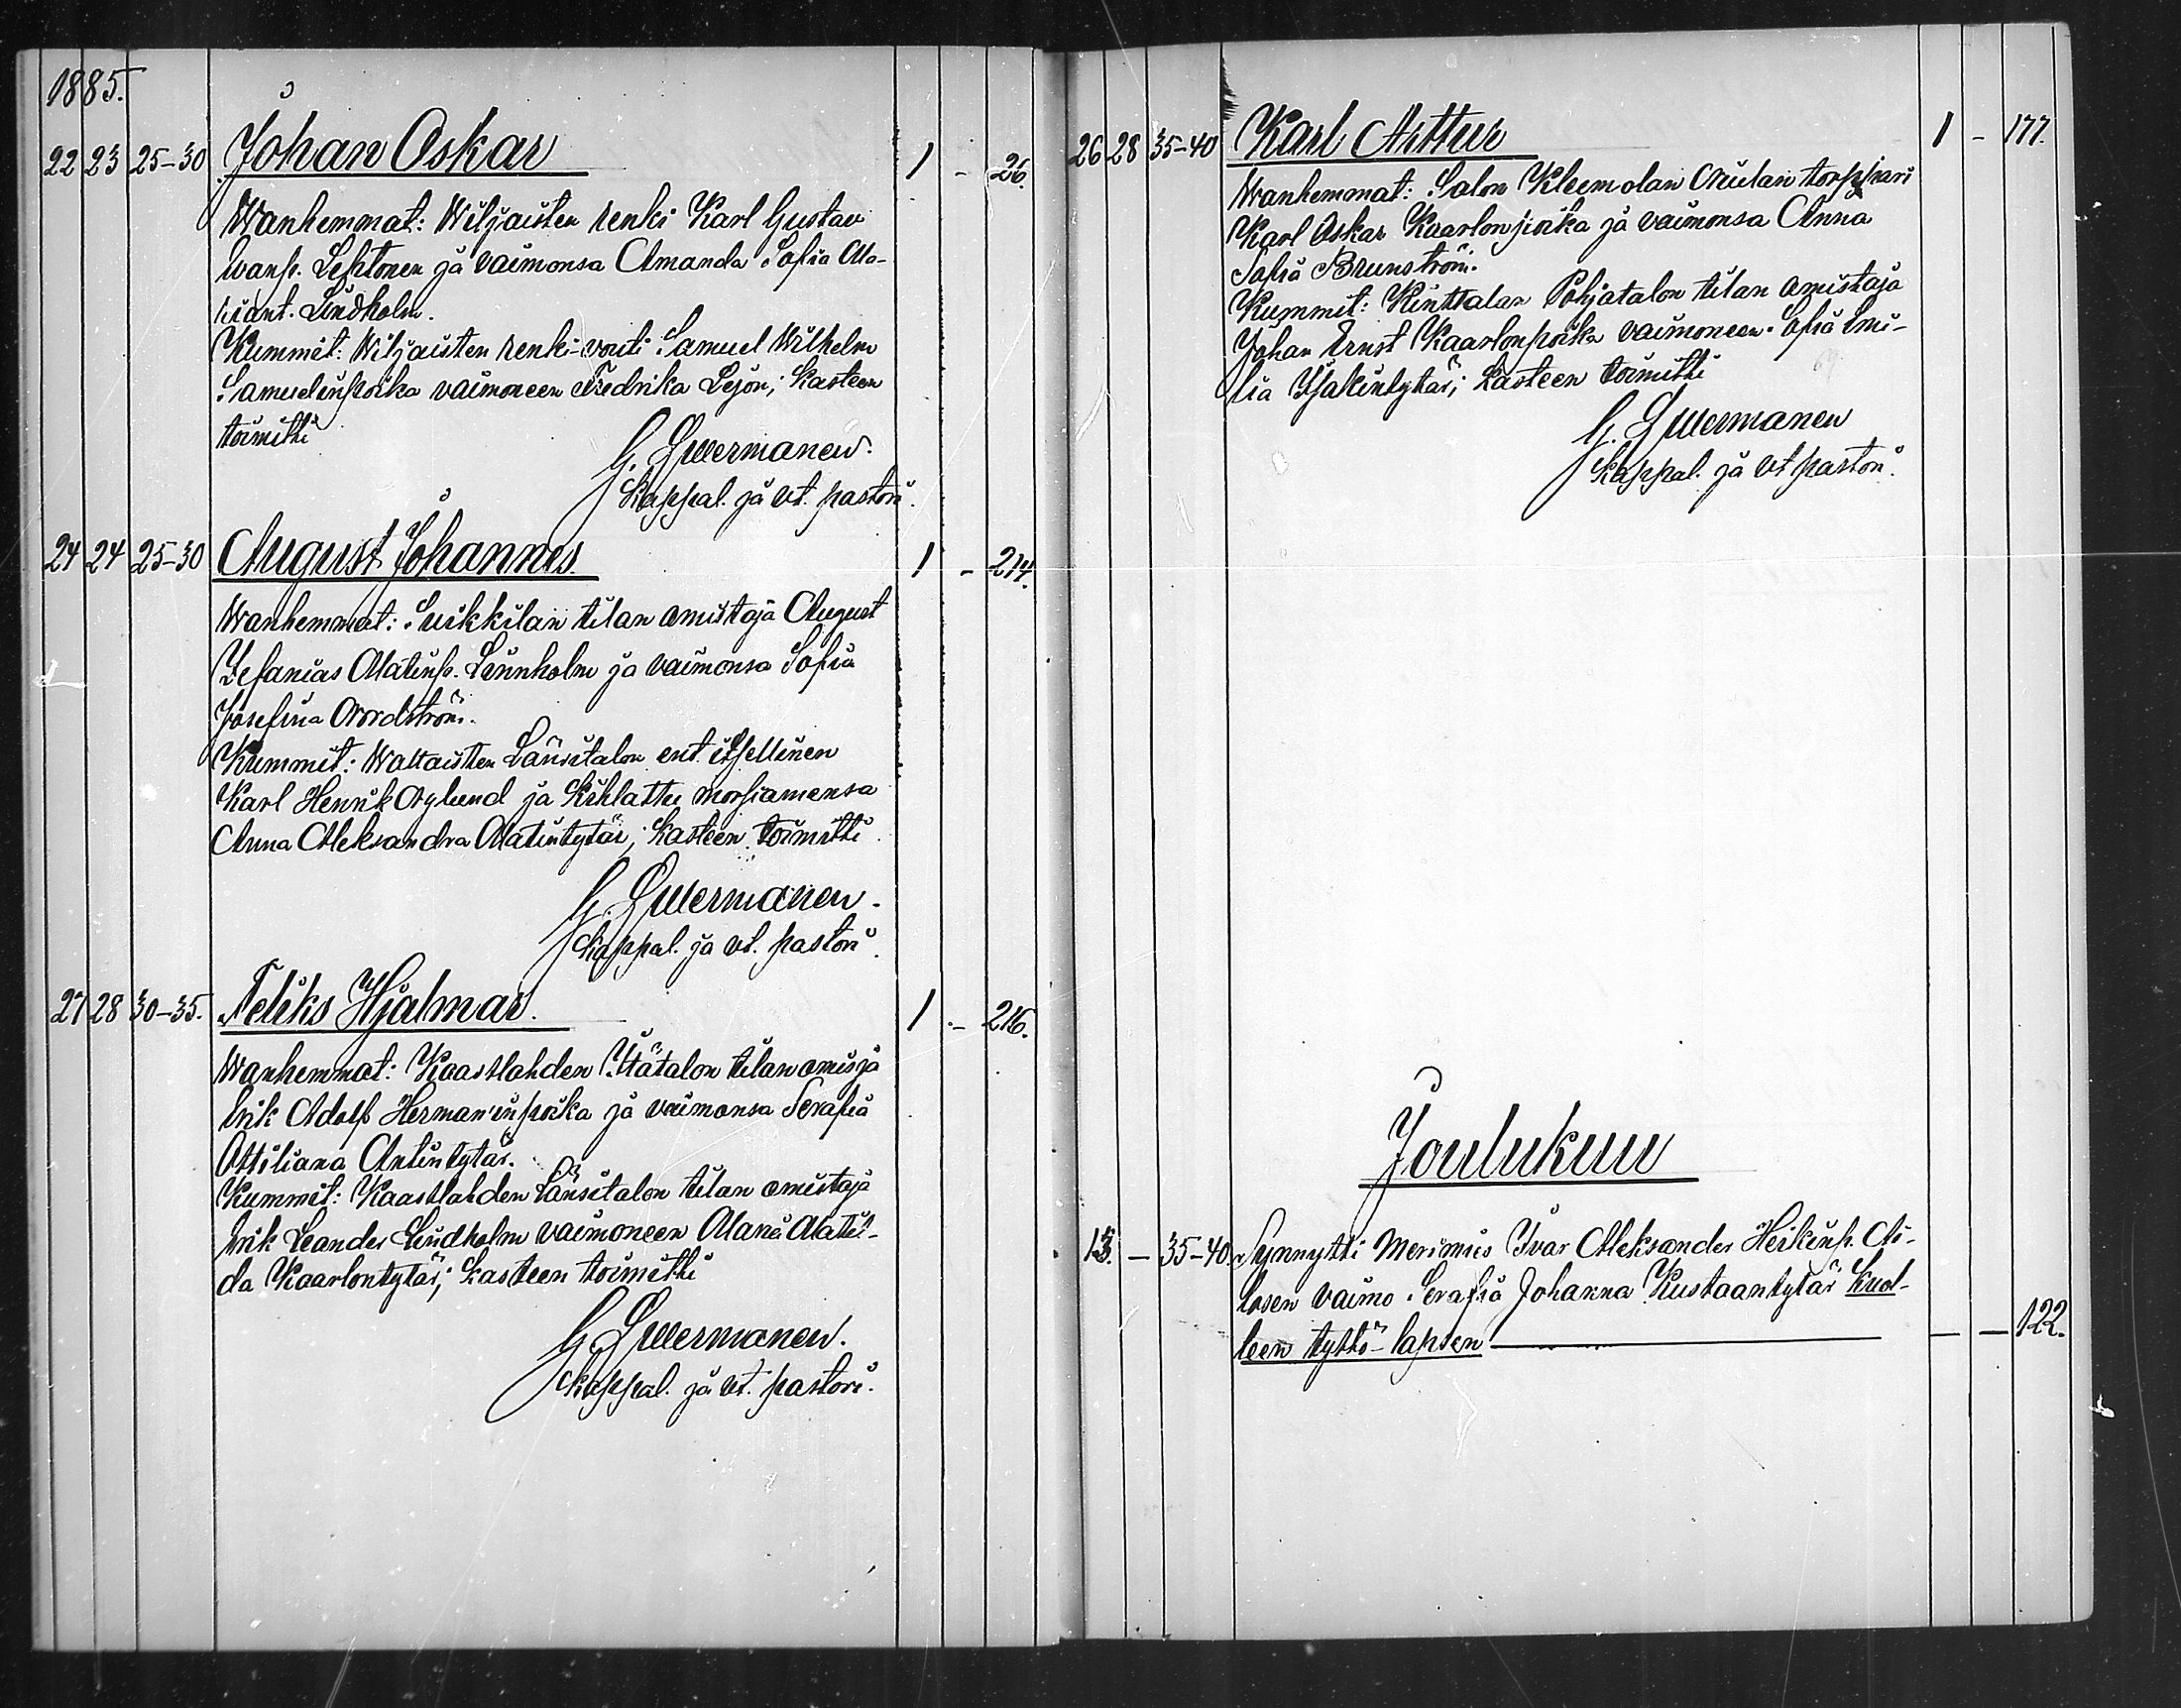 1885.
22 23 25-30 Johan Oskar 1 - 26.
Wanhemmat: Wiljaisten renki Karl Gustav
Iivanp. Lehtonen ja vaimonsa Amanda Sofia Ma-
riant. Lindholm.
Kummit: Wiljaisten renki-vouti Samuel Wilhelm
Samuelinpoika vaimoneen Fredrika Lejon; kasteen
toimitti
G. Gvermanen.
Kappal. ja vt. pastori.
24 24 25-30 August Johannes. 1 - 214.
Wanhemmat: Suikkilan tilan omistaja August
Zefanias Matinp. Lännholm ja vaimonsa Sofia
Josefina Nordström.
Kummit: Waltaisten Länsitalon ent. itsellinen
Karl Henrik Nylund ja kihlattu morsiamensa
Anna Aleksandra Matintytär; kasteen toimitti
G. Gvermanen.
Kappal. ja vt. pastori.
27 28 30-35. Feliks Hjalmar. 1 - 216.
Wanhemmat: Kaastlahden Itätalon tilan omisja
Erik Adolf Hermaninpoika ja vaimonsa Serafia
Ottiliana Antintytär.
Kummit: Kaastlahden Länsitalon tilan omistaja
Erik Leander Lindholm vaimoneen Maria Matil-
da Kaarlontytär; kasteen toimitti
G. Gvermanen.
Kappal. ja vt. pastori.
26 28 35-40 Karl Arttur 1 - 177.
Wanhemmat: Salon Kleemolan Niulan torppari
Karl Oskar Kaarlonpoika ja vaimonsa Anna
Sofia Brunström.
Kummit: Kinttalan Pohjatalon tilan omistaja
Johan Ernst Kaarlonpoika vaimoneen Sofia Emi-
lia Isakintytär; kasteen toimitti
G. Gvermanen
Kappal. ja vt. pastori.
Joulukuu
13. - 35-40. Synnytti merimies Ivar Aleksander Heikinp. Ai-
losen vaimo Serafia Johanna Kustaantytär kuol-
leen tyttö-lapsen - - 122.